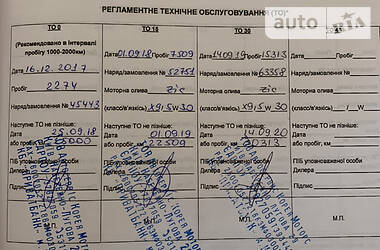 РЕГЛАМЕНТНЕ ТЕХНІЧНЕ ОБСЛУГОВУВАННЯ (ТО)
auto RIA
ТО 0
(Рекомендовано в інтервалі
пробігу 1000-2000км)
Дата 16.12.2017
Пробіг
2274
Наряд/замовлення № 45443
Наступне ТО не пізніше:
Дата 25.09.18
або пробіг, км 15000
ПІБ уповноваженої особи
Дилера
Підпис
М.П.
ТО 15
Дата 01.09.18 Пробіг 7509
Наряд/замовлення № 52751
Моторна олива Zic
(класс/в'язкість) X9 / 5W 30
Наступне ТО не пізніше:
Дата 01.09.19
або пробіг, км 22509
ПІБ уповноваженої особи
Дилера
Підпис
М.П.
ТО 30
Дата 14.09.19 Пробіг 15313
Наряд/замовлення № 63358
Моторна олива Zic
(класс/в'язкість) X9 / 5W 30
Наступне ТО не пізніше:
Дата 14.09.20
або пробіг, км 30313
ПІБ уповноваженої особи
Дилера
Підпис
М.П.
Дата Пробіг
Наряд/замовлення №
Моторна олива
(класс/в'язкість) / W
Наступне ТО не пізніше:
Дата
або пробіг, км
ПІБ уповноваженої особи
Дилера
Підпис
М.П.